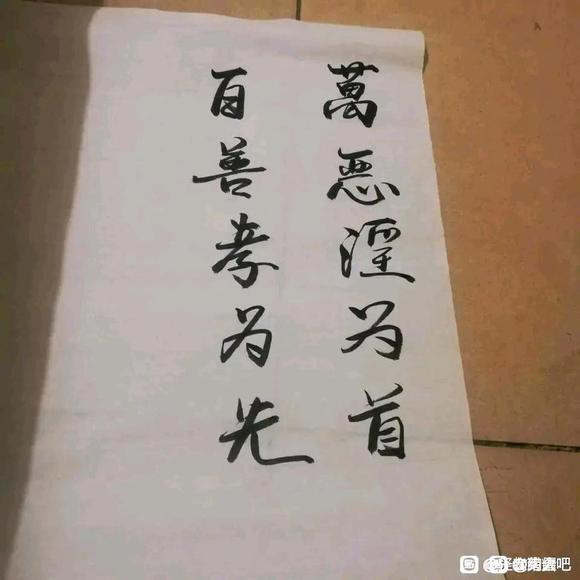 萬恶淫为首
百善孝为先